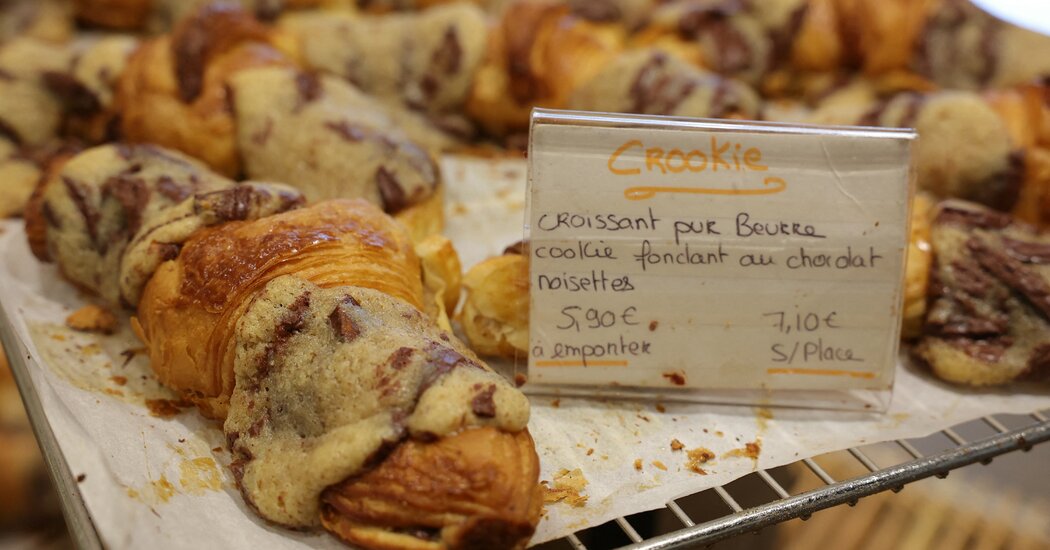 CROOKIE
CROISSANT PUR BEURRE
COOKIE fondant au chocolat
noisettes
5,90€ 7,10€
à emporter S/Place